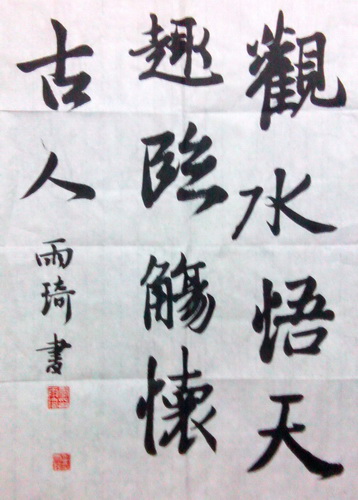 觀水悟天
趣臨觴懷
古人
雨琦書